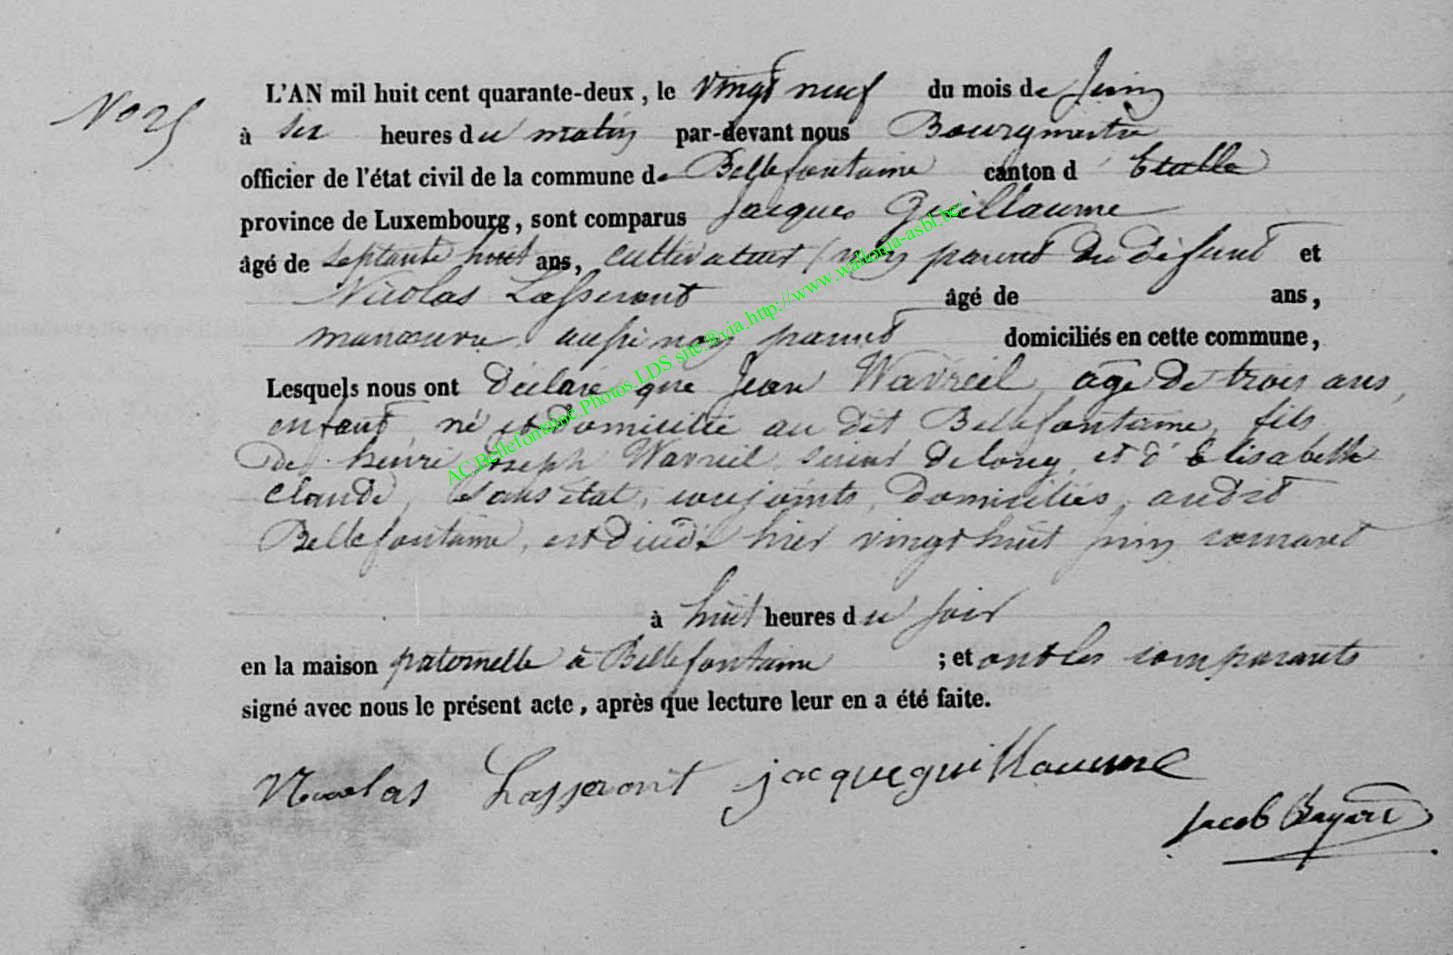 No 25
L'AN mil huit cent quarante-deux, le vingt neuf du mois de Juin
à six heures du matin par-devant nous Bourgmestre
officier de l'état civil de la commune de Bellefontaine canton d'Etalle
province de Luxembourg, sont comparus Jacques Guillaume
âgé de septante huit ans, cultivateur non parent du défunt et
Nicolas Lasseront âgé de ans,
manœuvre aussi non parent domiciliés en cette commune,
Lesquels nous ont déclaré que Jean Wavreil, agé de trois ans,
enfant, né et domicilié au dit Bellefontaine, fils
de henri Joseph Wavreil, et d'Elisabeth
Claude, sans état, conjoints, domiciliés audit
Bellefontaine, est décédé hier vingt huit juin courant
à huit heures du soir
en la maison paternelle à Bellefontaine ; et ont les comparants
signé avec nous le présent acte, après que lecture leur en a été faite.
Nicolas Lasseront jacque guillaume
Jacob Bayard
AC.Bellefontaine.Photos.LDS site@via.http://www.wallonia-asbl.be/